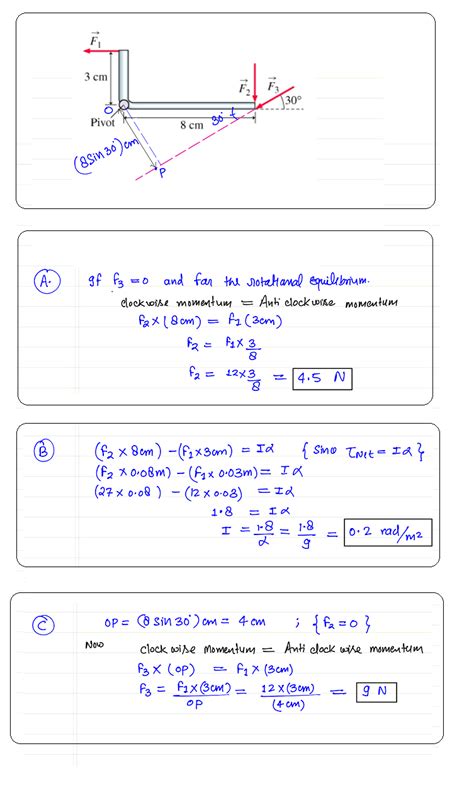 F₁
3 cm
F₂ F₃
30°
O
Pivot 8 cm 30°
(8sin30°)cm
P
A. If F₃ = 0 and for the rotational equilibrium.
Clockwise momentum = Anti clockwise momentum
F₂ × (8cm) = F₁ (3cm)
F₂ = F₁ × 3/8
F₂ = 12 × 3/8 = 4.5 N
B (F₂ × 8cm) - (F₁ × 3cm) = Iα { Since τNet = Iα }
(F₂ × 0.08m) - (F₁ × 0.03m) = Iα
(27 × 0.08) - (12 × 0.03) = Iα
1.8 = Iα
I = 1.8/α = 1.8/9 = 0.2 rad/m²
C OP = (8 sin 30°) cm = 4 cm ; { F₂ = 0 }
Now Clockwise Momentum = Anti clock wise momentum
F₃ × (OP) = F₁ × (3cm)
F₃ = F₁×(3cm)/OP = 12×(3cm)/(4cm) = 9 N